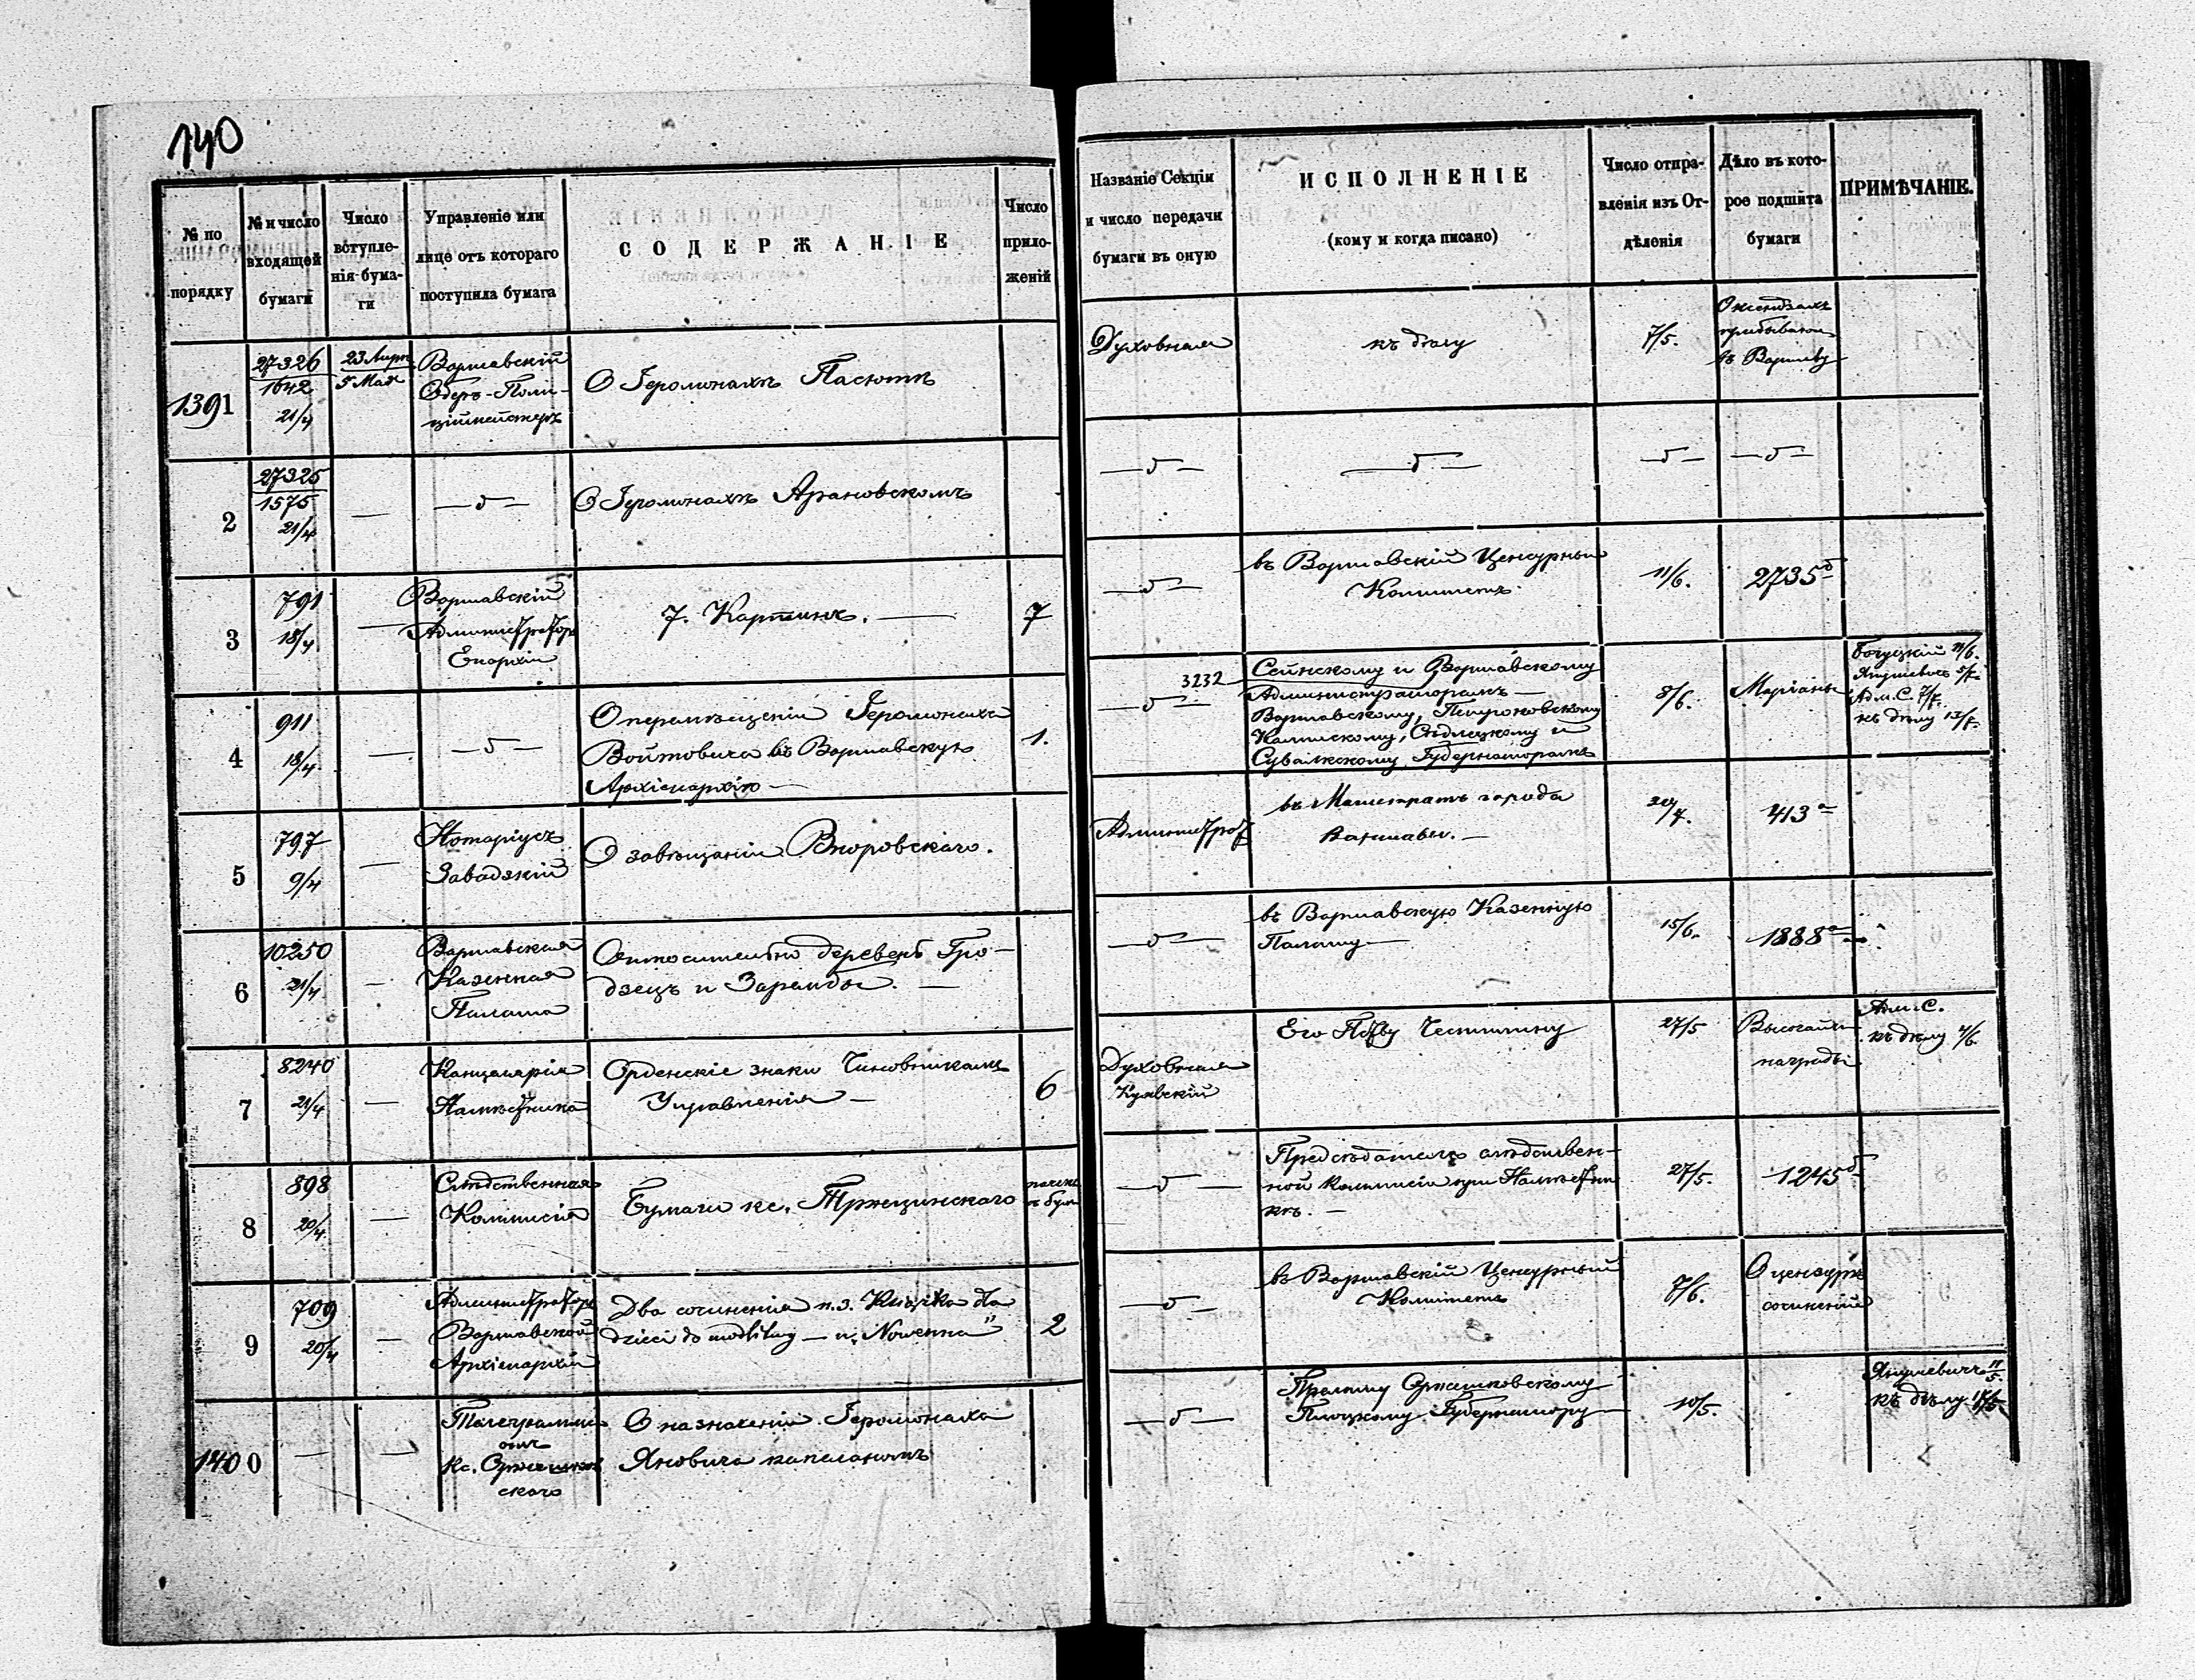 140
№ по
порядку
№ и число
входящей
бумаги
Число
вступле-
нія бума-
ги
Управленіе или
лице отъ котораго
поступила бумага
СОДЕРЖАНІЕ
Число
прило-
женій
Названіе Секціи
и число передачи
бумаги въ оную
ИСПОЛНЕНІЕ
(кому и когда писано)
Число отпра-
вленія изъ От-
дѣленія
Дѣло въ кото-
рое подшита
бумаги
ПРИМѢЧАНІЕ.
1391
27326
1642
21/4
23 Апр.
5 Мая
Варшавскій
Оберъ-Поли-
ціймейстеръ
О Іеромонахѣ Пасютѣ
Духовная
къ дѣлу
7/5.
О ксендзахъ
въ Варшаву
2
27325
1575
21/4
—
— δ —
О Іеромонахѣ Арановскомъ
— δ —
— δ —
— δ —
— δ —
3
791
18/4
—
Варшавскій
Администраторъ
Епархіи
7. Картинъ. —
7
— δ —
въ Варшавскій Цензурный
Комитетъ
11/6.
2735 б
4
911
18/4.
—
— δ —
О перемѣщеніи Іеромонаха
Войтовича въ Варшавскую
Архіепархію —
1.
— δ —
3232
Сейнскому и Варшавскому
Администраторамъ —
Варшавскому, Петроковскому
Калишскому, Сѣдлецкому и
Сувалкскому Губернаторамъ
8/6.
Маріаны
11/6.
Янушевичъ 5/7.
Адм. С. 7/7.
къ дѣлу 13/7.
5
797
9/4
—
Нотаріусъ
Завадзкій
О завѣщаніи Второвскаго.
Администрат
въ Магистратъ города
Варшавы. —
413 а
6
10250
21/4
—
Варшавская
Казенная
Палата
Относительно деревень Гро-
дзецъ и Заранды. —
— δ —
въ Варшавскую Казенную
Палату —
15/6.
1888 а
7
8240
21/4
—
Канцелярія
Намѣстника
Орденскіе знаки Чиновникамъ
Управленія —
6
Духовная
Его Пр-ву
27/5
Высочайш.
награды
Адм. С.
къ дѣлу 4/6
8
898
20/4
—
Слѣдственная
Коммисія
Бумаги кс. Тржецинскаго
— δ —
Предсѣдателю слѣдствен-
ной Коммисіи при Намѣстни
кѣ. —
27/5.
1245 б
9
709
20/4
—
Администраторъ
Варшавской
Архіепархіи
Два сочиненія п. з. Książka dla
dzieci do modlitwy — и „Nowenna"
2
— δ —
въ Варшавскій Цензурный
Комитетъ
7/6.
О цензурѣ
сочиненій
1400
—
—
Телеграмма
отъ
кс. Оржешков
скаго
О назначеніи Іеромонаха
Яновича капеланомъ
— δ —
Прелату Оржешковскому
Плоцкому Губернатору —
10/5.
Янушевичъ 11/5.
къ дѣлу